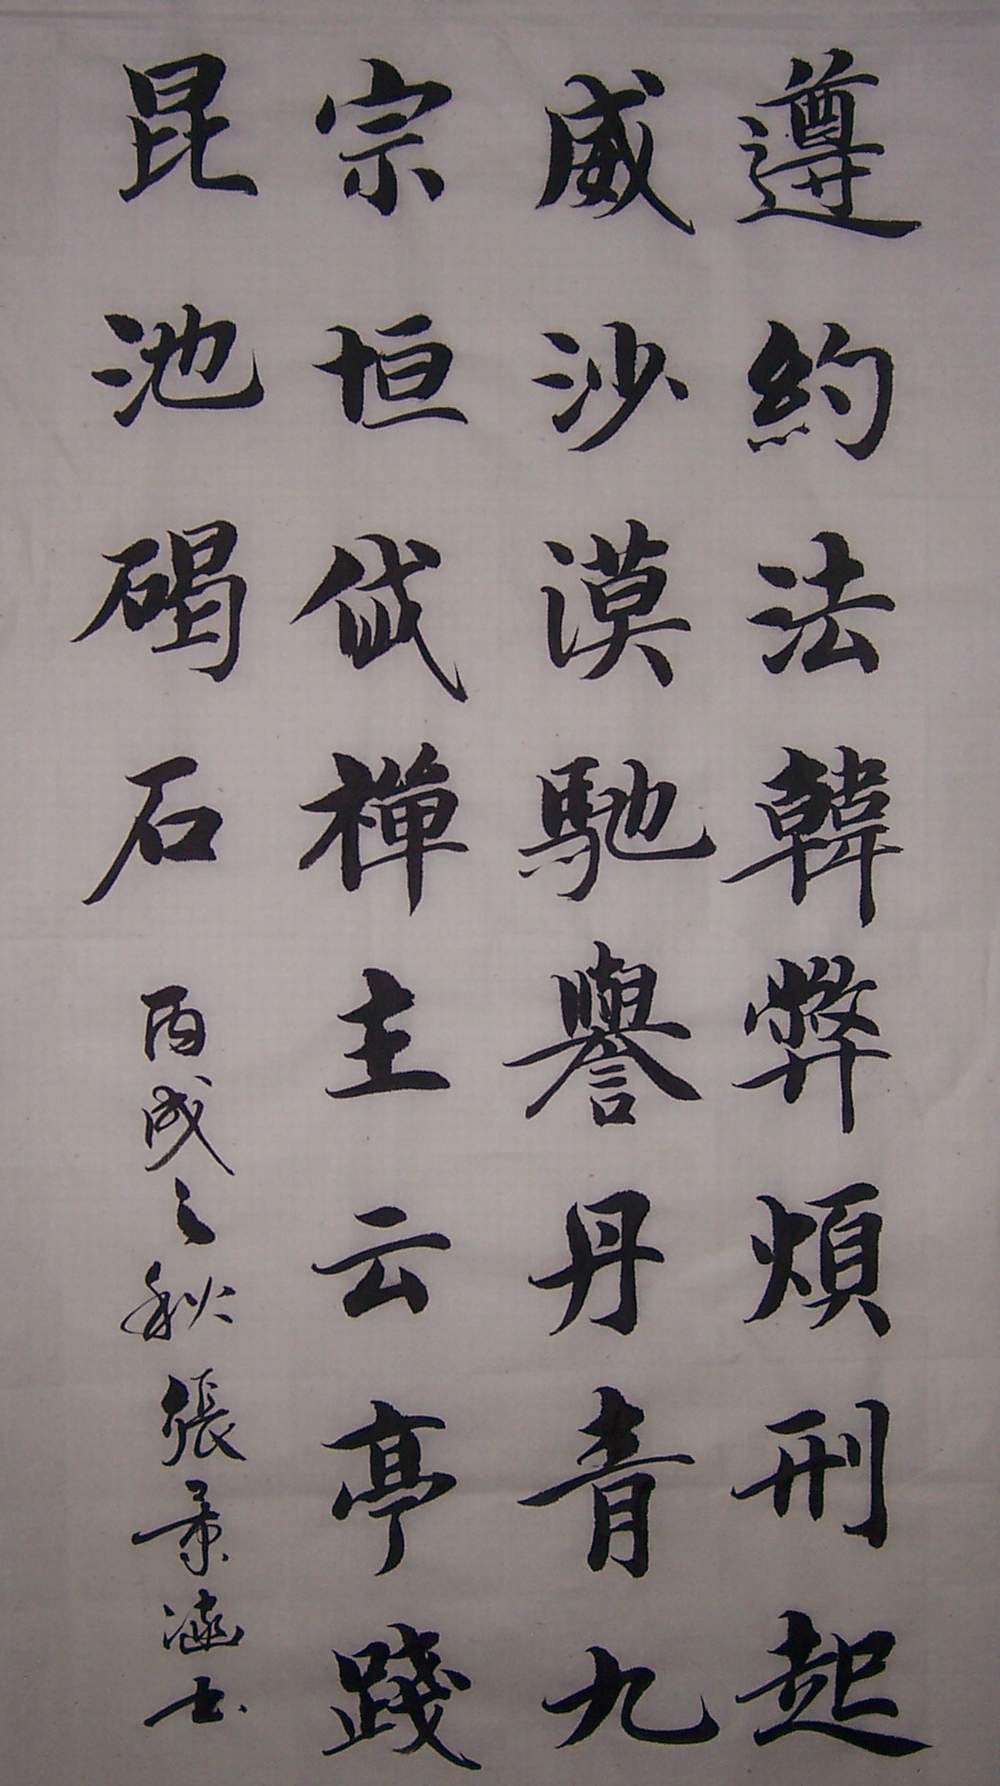 遵約法韓弊煩刑起
威沙漠馳譽丹青九
宗恒岱禪主云亭踐
昆池碣石 丙戌之秋 張 书